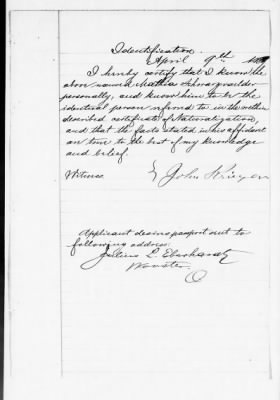 Identification.
April 9th
I hereby certify that I know the
above named Mathias Schwarzwalder
personally, and know him to be the
identical person referred to in the within
described certificate of Naturalization,
and that the facts stated in his affidavit
are true to the best of my knowledge
and belief.
Witness John Krieger
Applicant desires passport sent to
following address:
Julius L. Eberhardt
Wooster
O